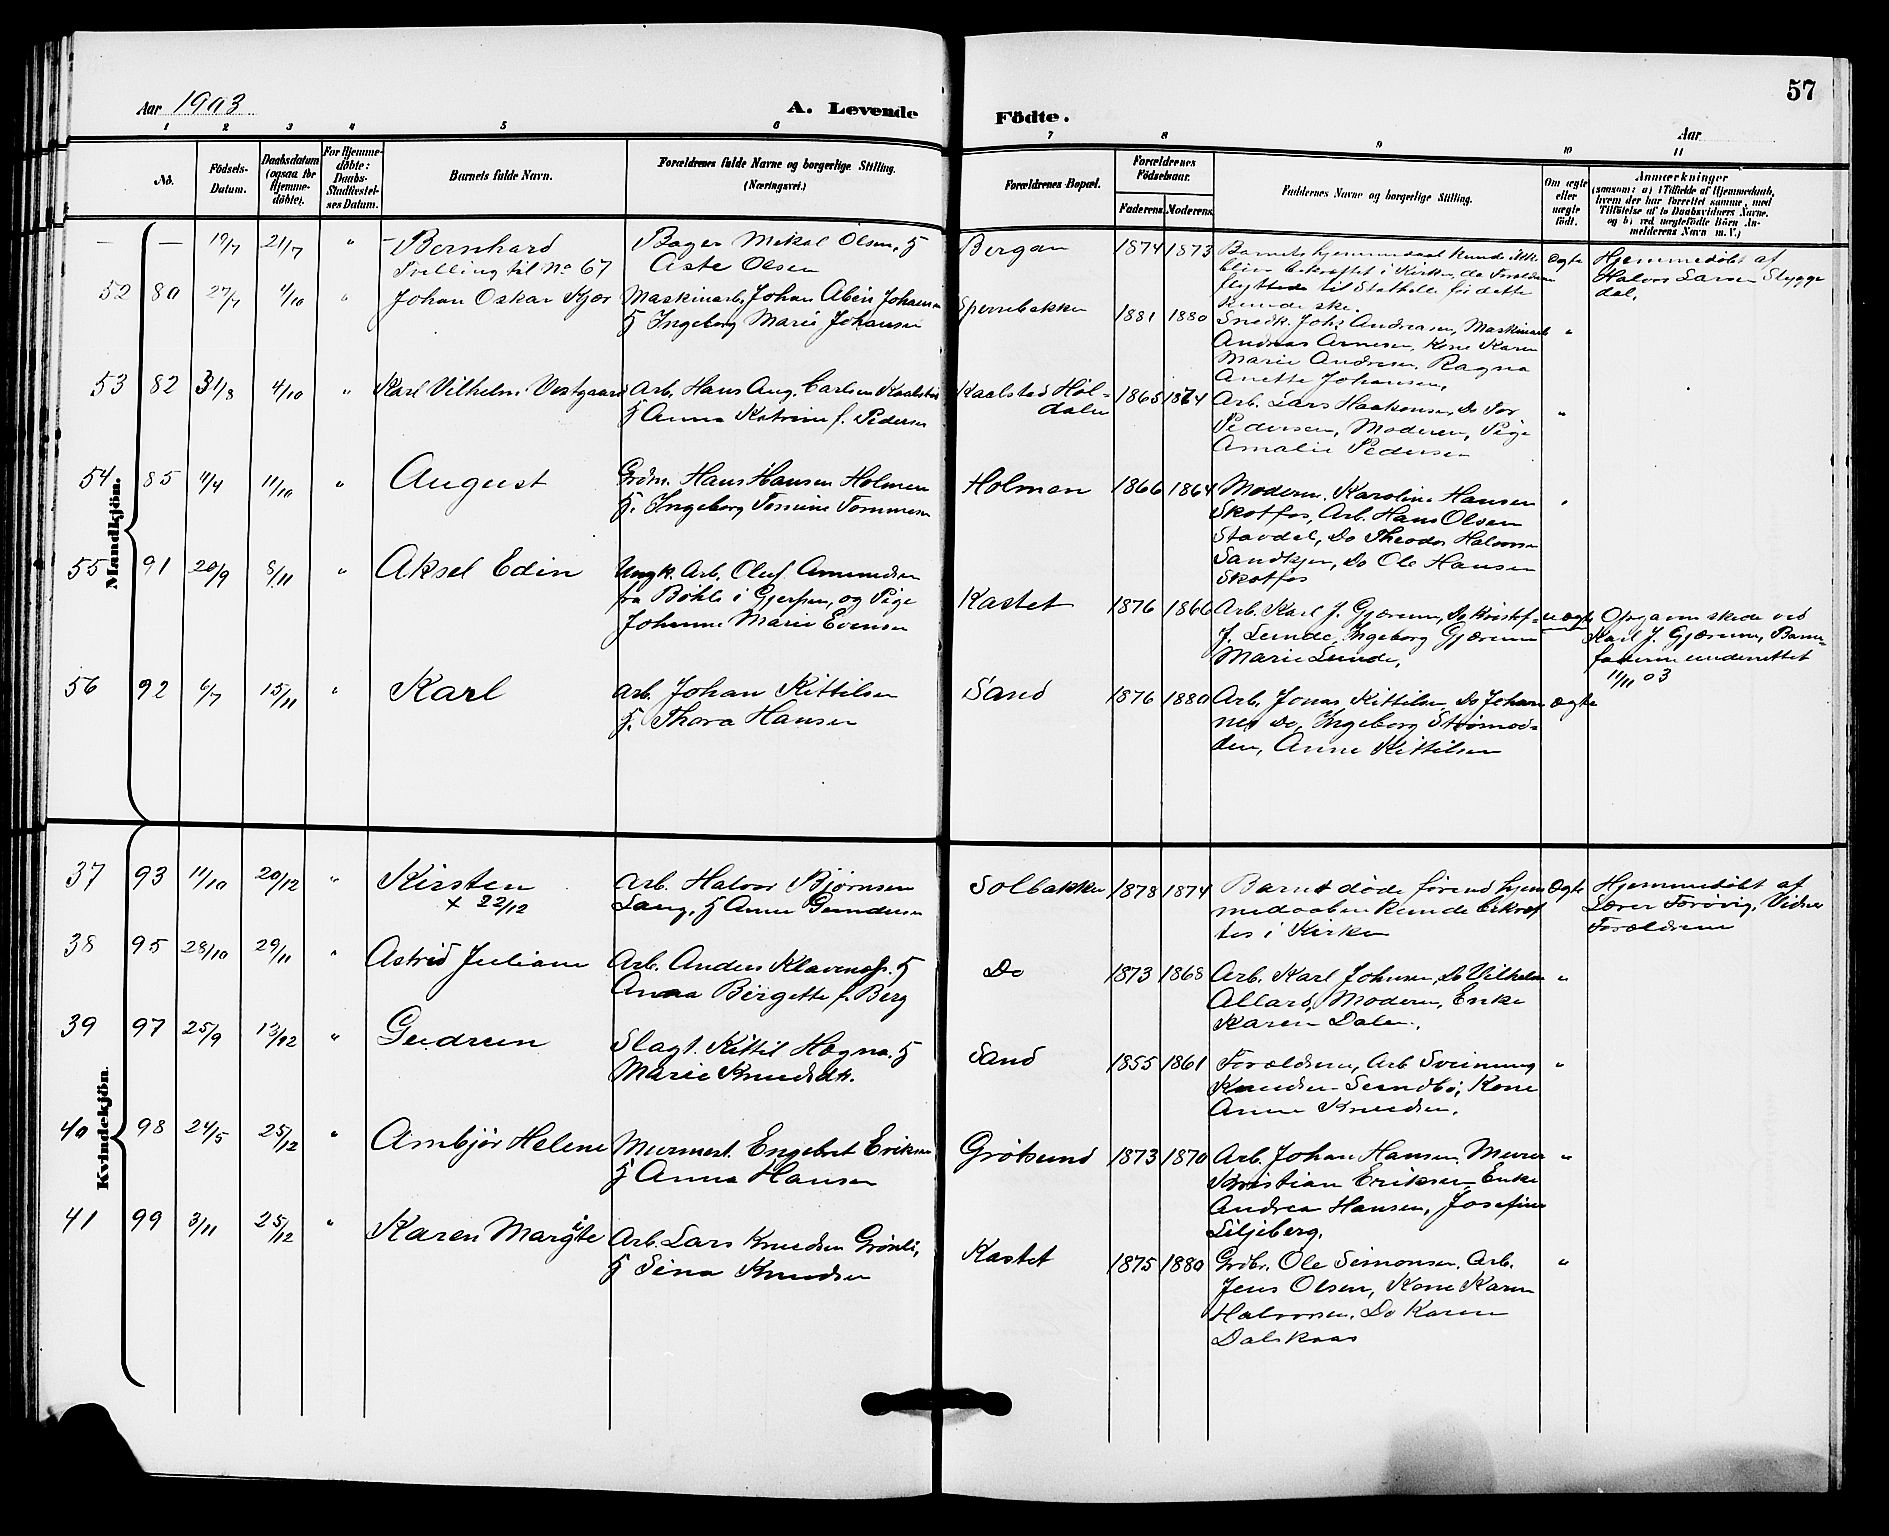 57
Aar 1903
A. Levende
Födte.
Aar
1 2 3 4 5 6 7 8 9 10 11
No.
Födsels-Datum.
Daabsdatum (ogsaa for Hjemme-döbte).
For Hjemme-döbte: Daabs-Stadfæstel-ses Datum.
Barnets fulde Navn.
Forældrenes fulde Navne og borgerlige Stilling. (Næringsvei.)
Forældrenes Bopæl.
Forældrenes Födselsaar.
Faderens. Moderens.
Faddernes Navne og borgerlige Stilling.
Om ægte eller uægte födt.
Anmærkninger
(saasom: a) i Tilfælde af Hjemmedaab, hvem der har forrettet samme, med Tilföielse af to Daabsvidners Navne, og b) ved uægtefödte Börn An-melderens Navn m. V.)
Mandkjön.
— — 19/7 21/7 " Bernhard
Tvilling til No 67
Bager Mekal Olsen, H
Aste Olsen
Bergan 1874 1873
Barnets hjemmedaab kunde ikke
blive bekræftet i Kirken, da Forældrene
flyttede til Stathelle før dette
kunde ske.
ægte
Hjemmedøbt af
Halvor Larsen Stygge
dal.
52 80 27/7 4/10 " Johan Oskar Kjær
Maskinarb. Johan Johansen
H Ingeborg Marie Johansen
Sperrebakken 1881 1880
Snedk. Johs Andreasen, Maskinarb
Andreas Arnesen, Kone Karen
Marie Andresen, Ragna
Anette Johansen.
"
53 82 31/8 4/10 " Karl Vilhelm Vestgaard
Arb. Hans Aug. Carlsen Kaalstad
H Anna Katrine f. Pedersen
Kaalstad Høl-
dalen
1865 1874
Arb. Lars Haakonsen, Do Tor
Pedersen, Moderen, Pige
Amalie Pedersen
"
54 85 11/9 11/10 " August
Grdm. Hans Hansen Holmen
H. Ingeborg Tomine Tommesen
Holmen 1866 1864
Moderen, Karoline Hansen
Skotfos, Arb. Hans Olsen
Stavdal, Do Theodor Halvorsen
Sandkjen, Do Ole Hansen
Skotfos
"
55 91 20/9 8/11 " Aksel Edin
Ungk. Arb. Oluf Amundsen
fra Bøhle i Gjerpen, og Pige
Johanne Marie Evensen
Kastet 1876 1866
Arb. Karl J. Gjærum, Do Kristof-
f. Lunde, Ingeborg Gjærum
Marie Lunde.
uægte
Opgaven skede ved
Karl J. Gjærum, Barne-
faderen underrettet
11/11 03
56 92 6/7 15/11 " Karl
Arb. Johan Kittilsen
H. Thora Hansen
Sand 1876 1880
Arb. Jonas Kittilsen, Do Johan
nes Do, Ingeborg Strømod-
den, Anne Kittilsen
ægte
Kvindekjön.
37 93 11/10 20/12 " Kirsten
+ 22/12
Arb. Halvor Bjørnsen
Lang, H Anne Gundersen
Solbakken 1878 1874
Barnet døde førend hjem
medaaben kunde bekræf
tes i Kirken
Ægte
Hjemmedøbt af
Lærer Forøvig, Vidner
Forældrene
38 95 28/10 29/11 " Astrid Juliane
Arb. Anders Klavenæs. H
Anna Birgette f. Berg
Do 1873 1868
Arb. Karl Johnsen, Do Vilhelm
Allard, Moderen, Enke
Karen Dalen.
"
39 97 25/9 13/12 " Gudrun
Slagt. Kittil Høgna. H
Marie Knudsdtr.
Sand 1855 1861
Forældrene, Arb Sveinung
Knudsen Lundbø, Kone
Anne Knudsen.
"
40 98 24/5 25/12 " Arnbjør Helene
Murmest. Engebret Eriksen
H Anna Hansen
Grøtsund 1873 1870
Arb. Johan Hansen, Murer
Kristian Eriksen, Enke
Andrea Hansen, Josefine
Liljeberg.
"
41 99 3/11 25/12 " Karen Margite
Arb. Lars Knudsen Grønli,
H Sina Knudsen
Kastet 1875 1880
Grdbr. Ole Simonsen, Arb.
Jens Olsen, Kone Karen
Halvorsen, Do Karen
Dalskaas
"